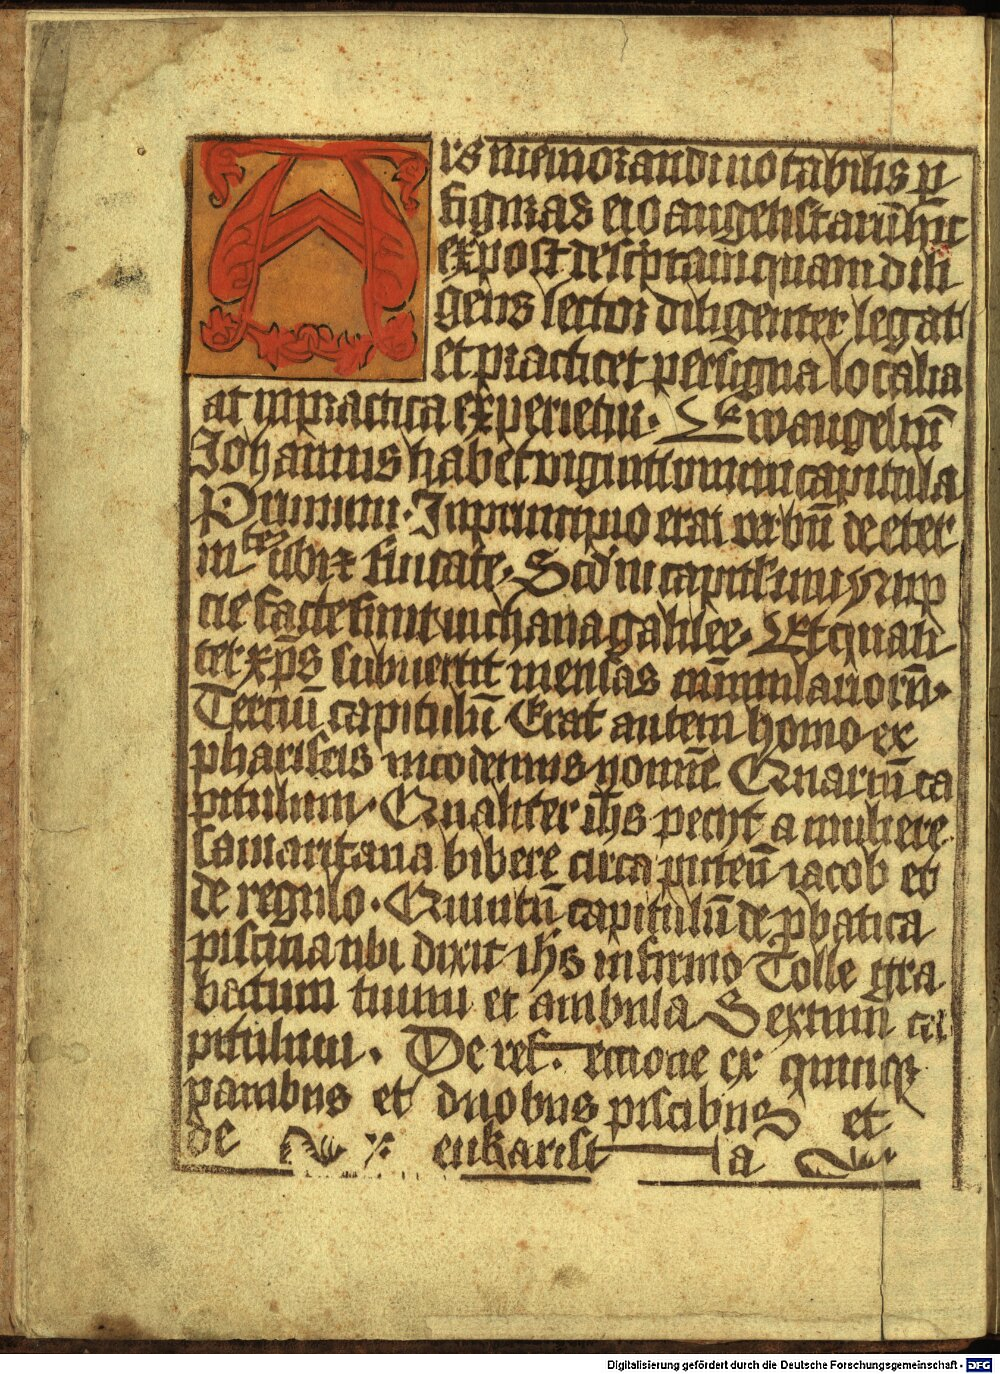 Ars memorandi notabilis p̱
figuras ewangelistarū hic
ex post descriptam quam dili
gens lector diligenter legat
et practicet per signa localia
ut in practica experietur. Ewangeliū
Johannis habet viginti unum capitula
Primum. In principio erat verbū de eter
nitate verbi et trinitate. Scd'm capitl'um Nup
cie facte sunt in chana galilee. Et quali
ter xp̄s subvertit mensas nūmulariorū.
Terciū capitulū Erat autem homo ex
phariseis nicodemus nomīe Quartū ca
pitulum. Qualiter ih̄s peciit a muliere
samaritana bibere circa puteū iacob et
de regulo. Quintū capitulū de p̱batica
piscina ubi dixit ih̄s infirmo Tolle gra
batum tuum et ambula Sextum ca
pitulum. De refectione ex quinq̱
panibus et duobus piscibus et
de eukaristia
Digitalisierung gefördert durch die Deutsche Forschungsgemeinschaft - DFG